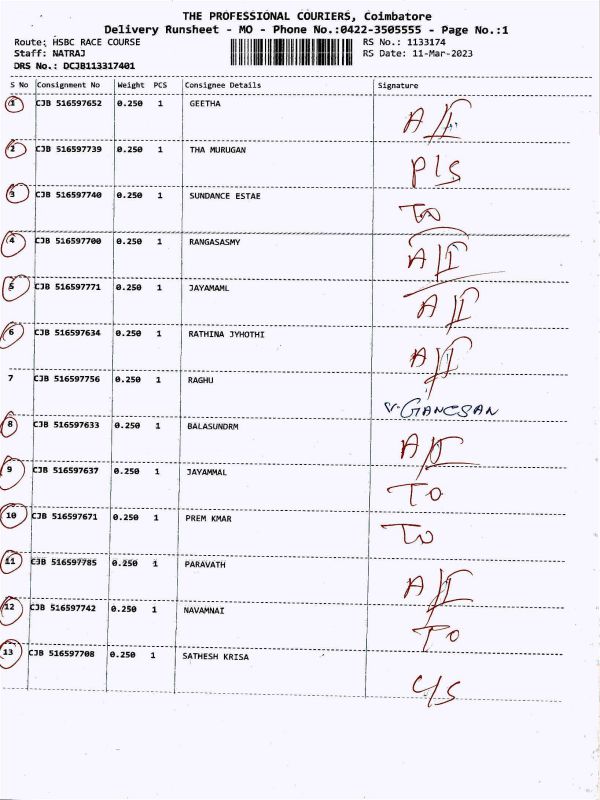 THE PROFESSIONAL COURIERS, Coimbatore
Delivery Runsheet - MO - Phone No.:0422-3505555 - Page No.:1
Route: HSBC RACE COURSE RS No.: 1133174
Staff: NATRAJ RS Date: 11-Mar-2023
DRS No.: DCJB113317401
S No Consignment No Weight PCS Consignee Details Signature
1 CJB 516597652 0.250 1 GEETHA A/I
2 CJB 516597739 0.250 1 THA MURUGAN P/S
3 CJB 516597740 0.250 1 SUNDANCE ESTAE TO
4 CJB 516597700 0.250 1 RANGASASMY A/I
5 CJB 516597771 0.250 1 JAYAMAML A/I
6 CJB 516597634 0.250 1 RATHINA JYHOTHI A/I
7 CJB 516597756 0.250 1 RAGHU V. GANESAN
8 CJB 516597633 0.250 1 BALASUNDRM A/I
9 CJB 516597637 0.250 1 JAYAMMAL TO
10 CJB 516597671 0.250 1 PREM KMAR TO
11 CJB 516597785 0.250 1 PARAVATH A/I
12 CJB 516597742 0.250 1 NAVAMNAI TO
13 CJB 516597708 0.250 1 SATHESH KRISA C/S